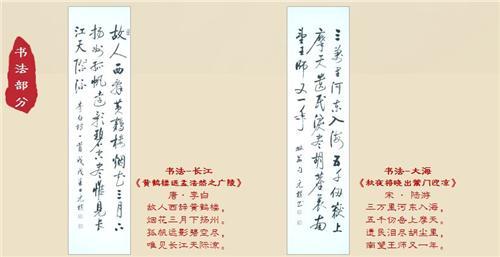 书法部分
故人西辞黄鹤楼烟花三月下
扬州孤帆远影碧空尽惟见长
江天际流 李白诗一首
三万里河东入海五千仞岳上
摩天遗民泪尽胡尘里南
望王师又一年
书法-长江
《黄鹤楼送孟浩然之广陵》
唐·李白
故人西辞黄鹤楼，
烟花三月下扬州。
孤帆远影碧空尽，
唯见长江天际流。
书法-大海
《秋夜将晓出篱门迎凉》
宋·陆游
三万里河东入海，
五千仞岳上摩天。
遗民泪尽胡尘里，
南望王师又一年。